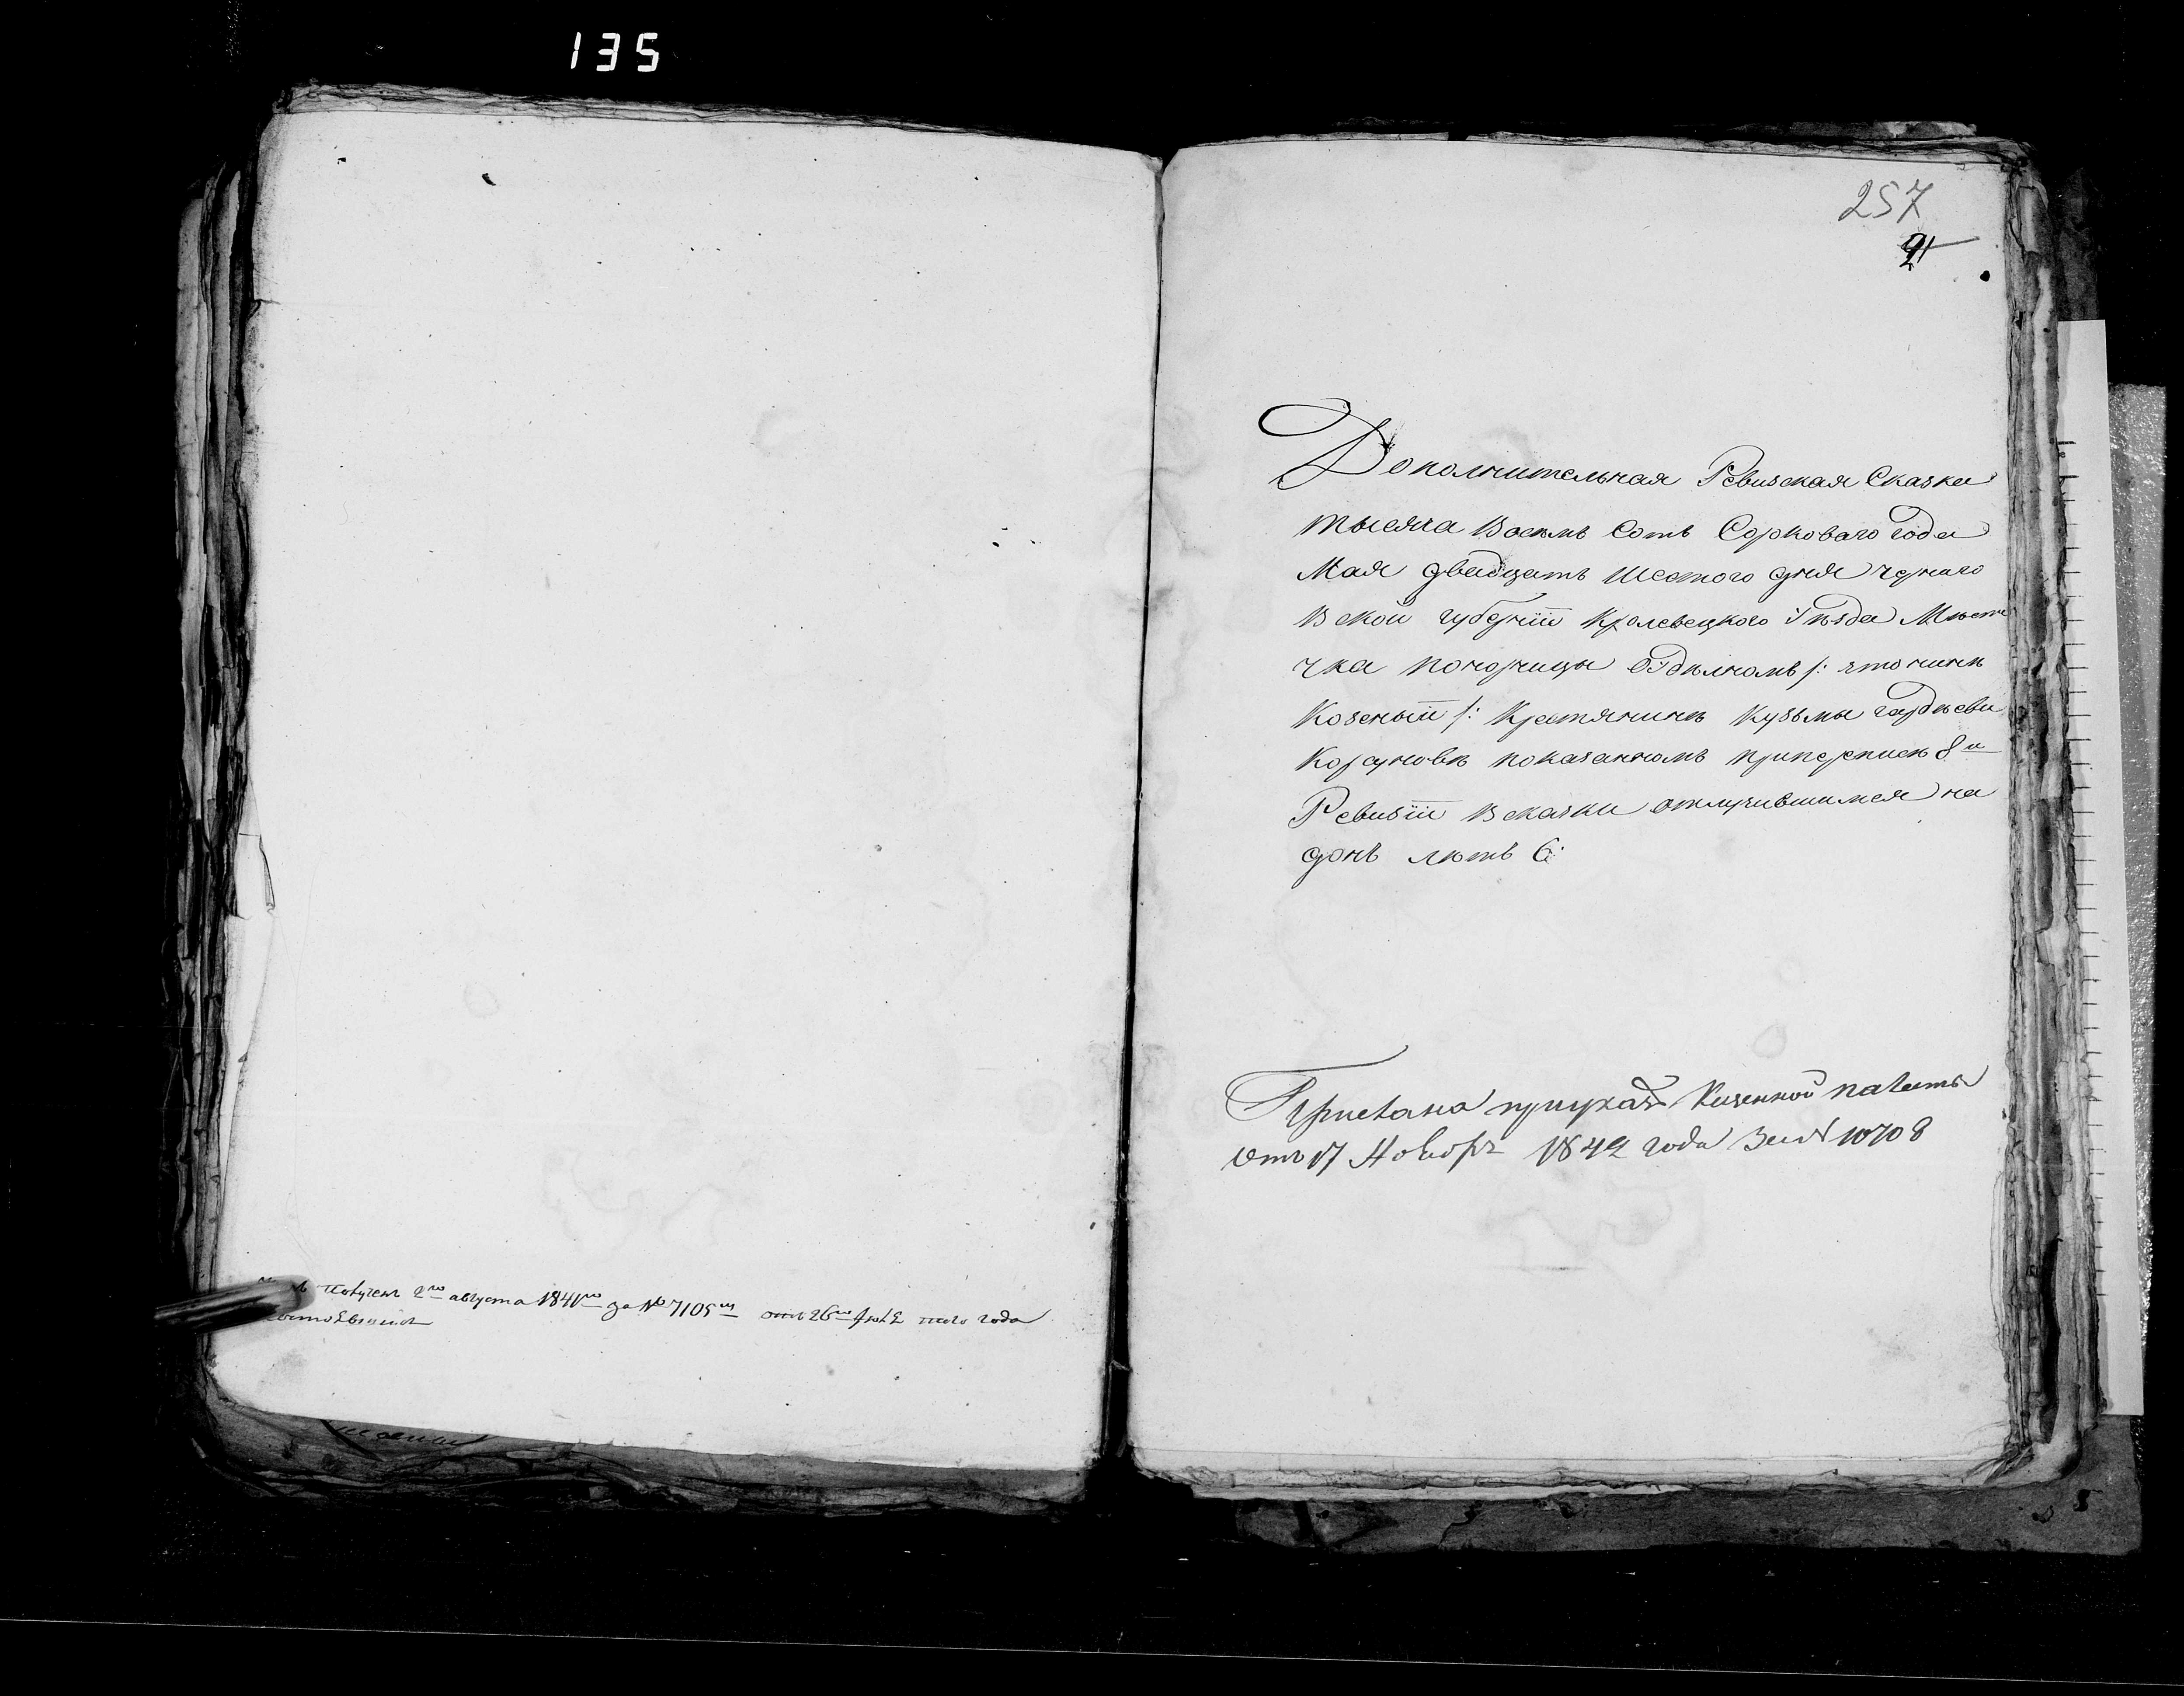 135
получен 2го августа 1841го за № 7105м отъ 26го того года
257
Дополнительная Ревизская Сказка
тысяча Восемь Сотъ Сорковаго года
Мая двадцать Шестого дня черниго
Вской губерніи Кролевецкого Уѣзда Мѣсте
чка понорницы ОБъ ономъ /: что нинѣ
Козеный /: Крестянинѣ Кузьмы гардѣеви
Коруновѣ показанномъ припереписѣ 8й
Ревизіи Всказки отлучившимся на
донъ лѣтъ 6:
Прислана приуказѣ Казенной палаты
Отъ 17 Ноября 1842 года За № 10708